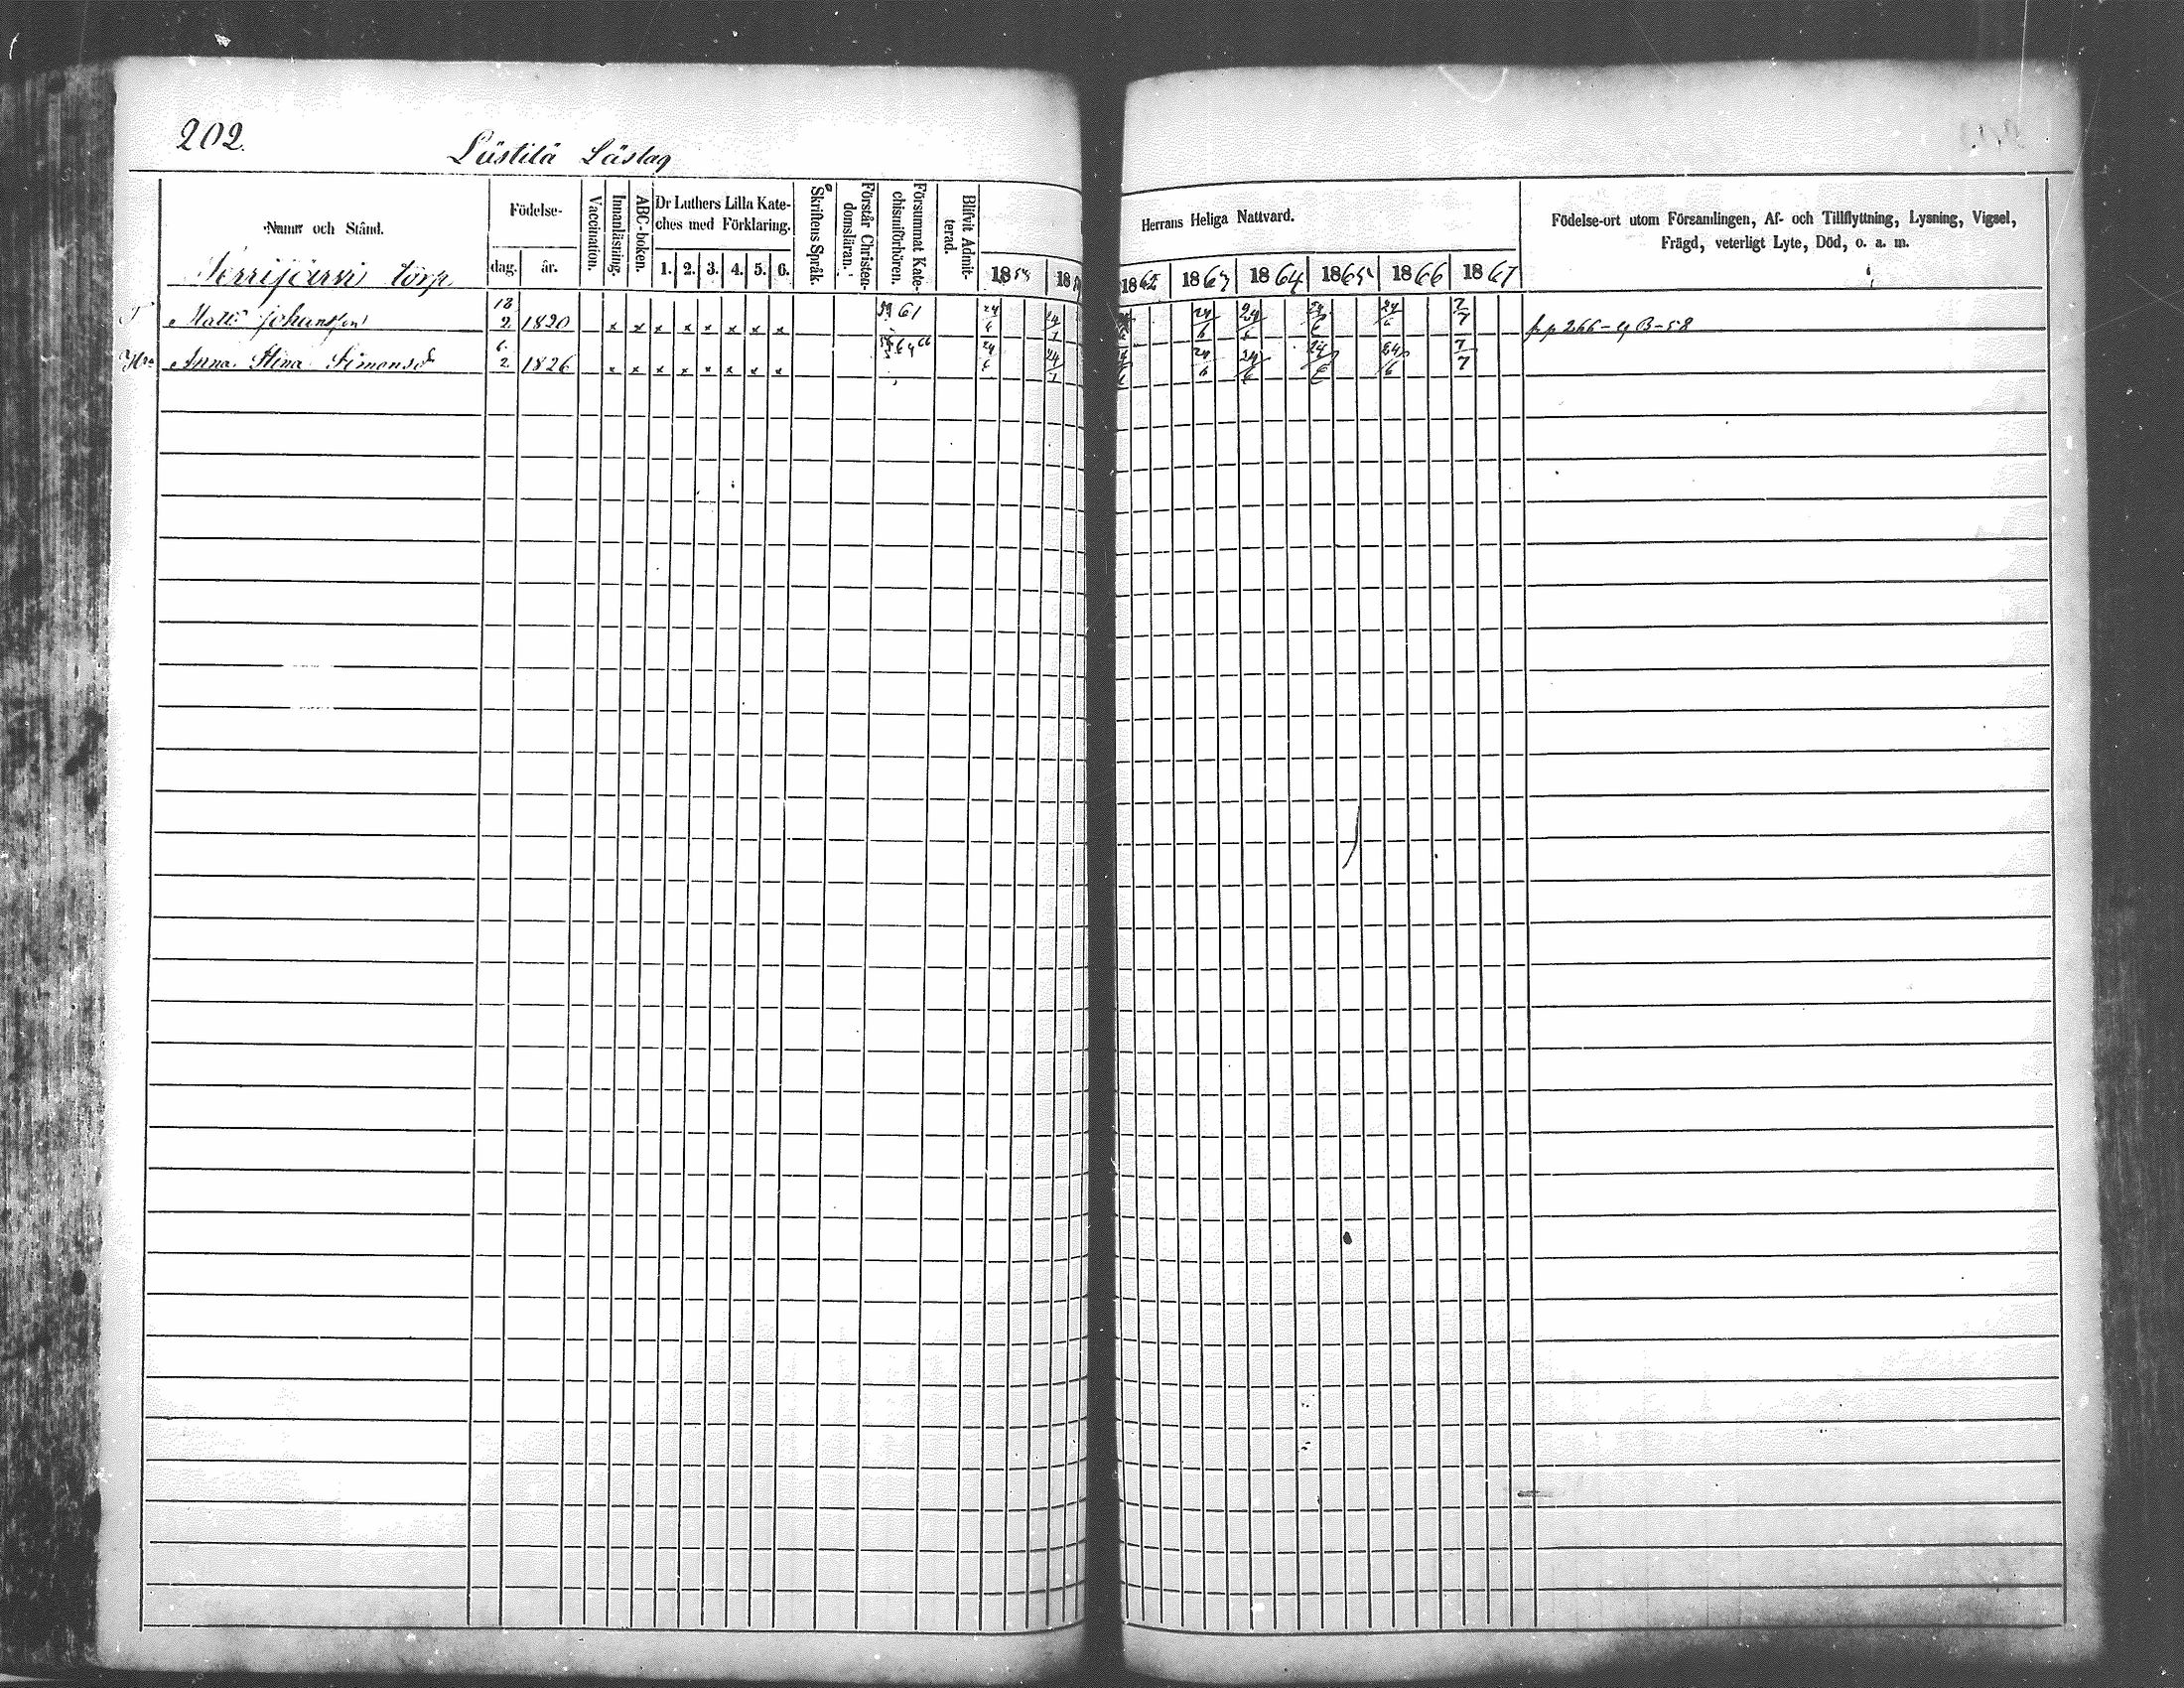 202.
Lüstilä Läslag
Namn och Stånd.
Födelse-
dag. år.
Vaccination.
Innanläsning.
ABC-boken.
Dr Luthers Lilla Kate-
ches med Förklaring.
1. 2. 3. 4. 5. 6.
Skriftens Språk.
Förstår Christen-
domsläran.
Försummat Kate-
chismiförhören.
Blifvit Admit-
terad.
Herrans Heliga Nattvard.
18 1862 1863 1864 1865 1866 1867
Födelse-ort utom Församlingen, Af- och Tillflyttning, Lysning, Vigsel,
Frägd, veterligt Lyte, Död, o. a. m.
torp
Matts Johansson 18/2 1820 x x x x x x x x 59 61 24/6 24/7 24/6 24/6 24/6 24/6 7/7 266
Anna Stina Simonsd 6/2 1826 x x x x x x x x 24/6 24/7 24/6 24/6 24/6 24/6 7/7